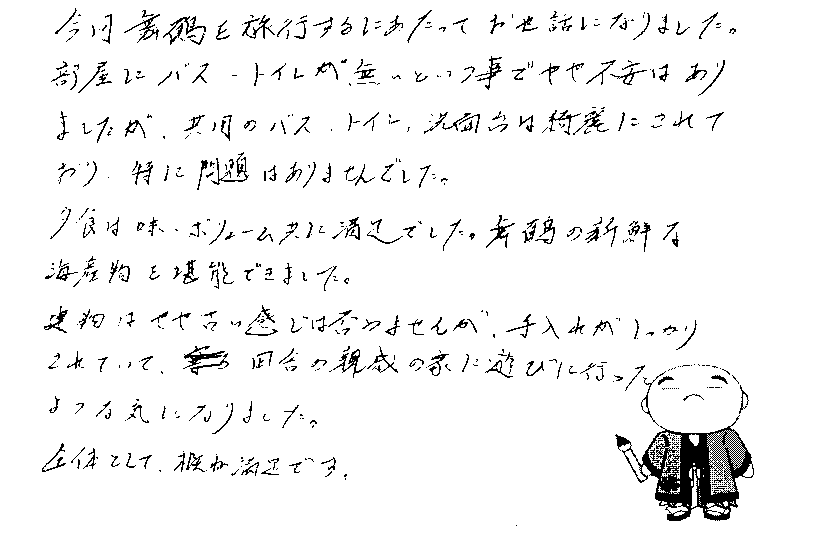 今月舞鶴を旅行するにあたって お世話になりました。
部屋にバス・トイレが無いという事でやや不安はあり
ましたが、共用のバス、トイレ、洗面台は綺麗にされて
おり、特に問題はありませんでした。
夕食は味・ボリューム共に満足でした。舞鶴の新鮮な
海産物を堪能できました。
建物はやや古い感じは否めませんが、手入れがしっかり
されていて、田舎の親戚の家に遊びに行った
ような気になりました。
全体として、概ね満足です。